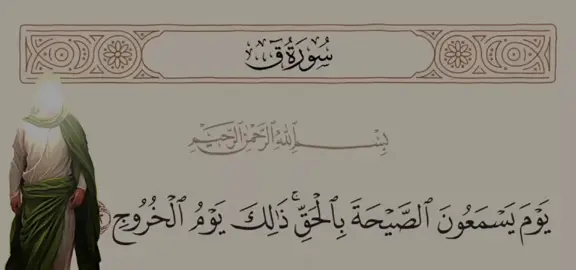 سُورَةُ قٓ
بِسْمِ اللَّهِ الرَّحْمَٰنِ الرَّحِيمِ
يَوْمَ يَسْمَعُونَ ٱلصَّيْحَةَ بِٱلْحَقِّۚ ذَٰلِكَ يَوْمُ ٱلْخُرُوجِ